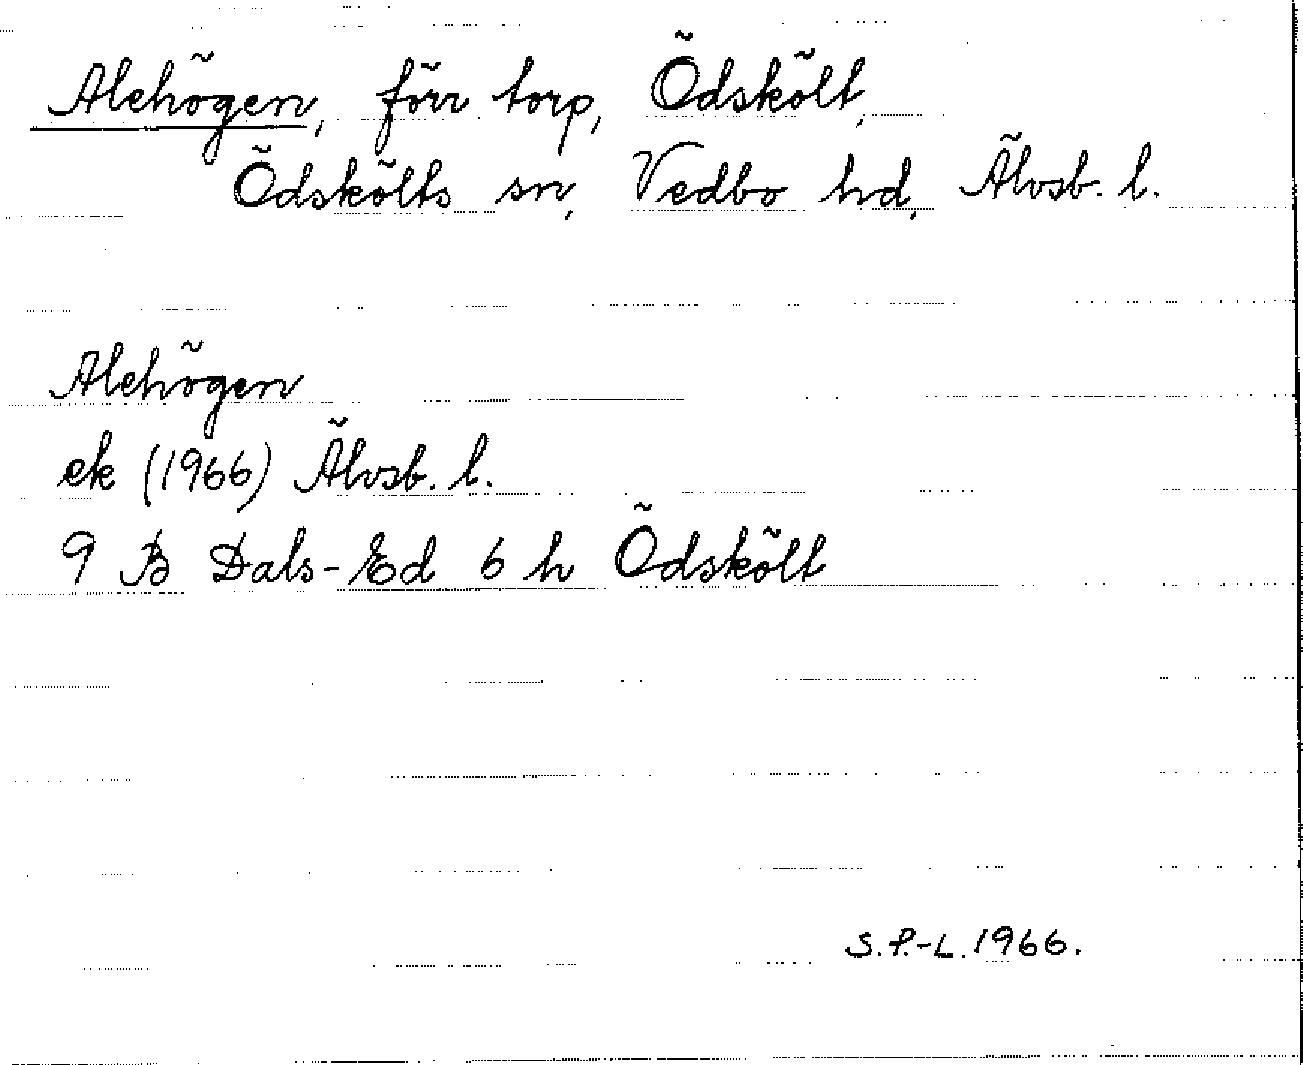 Alehögen, förr torp, Ödskölt,
Ödskölts sn, Vedbo hd, Älvsb. l.
Alehögen
ek (1966) Älvsb. l.
9 B Dals-Ed 6 h Ödskölt
S.P.-L. 1966.